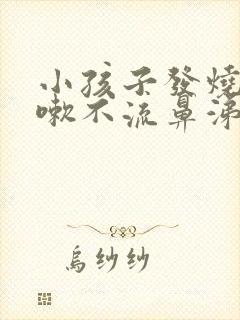 小孩子發燒
嗽不流鼻涕
烏紗紗